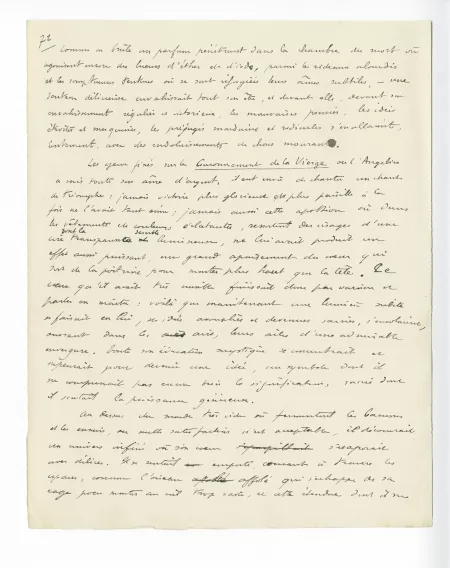 72
comme on brûle un parfum pénétrant dans la chambre du mort où
agonisent encore des lueurs d'éther et d'iode, parmi les rideaux alourdis
et les somptueuses tentures où se sont réfugiées leurs âmes subtiles, – une
douceur délicieuse envahissait tout son être, et devant elle, devant son
envahissement régulier et victorieux, les mauvaises pensées, les idées
étroites et mesquines, les préjugés mondains et ridicules s'en allaient,
lentement, avec des endolorissements de choses mourantes.
Les yeux fixés sur le Couronnement de la Vierge où l'Angelico
a mis toute son âme d'argent, il eut envie de chanter un chant
de triomphe ; jamais victoire plus glorieuse et plus paisible à la
fois ne l'avait tant ému ; jamais aussi cette apothéose où dans
les vêtements de couleurs éclatantes, ressortent des visages d'une
cire transparente lumineuse, ne lui avait produit un
effet aussi puissant, un grand apaisement du cœur qui
sort de la poitrine pour monter plus haut que la tête. Ce
cœur qu'il avait très finissait donc par
parler en maître : voilà que maintenant une lumière subite
se faisait en lui, ses idées envolées et devenues sacrées, s'envolaient,
ouvrant dans les airs, leurs ailes d'une admirable
envergure. Toute son éducation mystique se concentrait et
pour devenir une idée, un symbole dont il
ne comprenait pas encore bien la signification, mais dont
il sentait la puissance généreuse.
Au dessus du monde très vide où fermentent les haines
et les ennuis, où nulle satisfaction n'est acceptable, il découvrait
un univers infini où son cœur s'égarait
avec délices. Il se sentait emporté à travers les
espaces, comme l'oiseau affolé qui s'échappe de sa
cage pour monter au ciel trop vaste, et cette étendue dont il ne